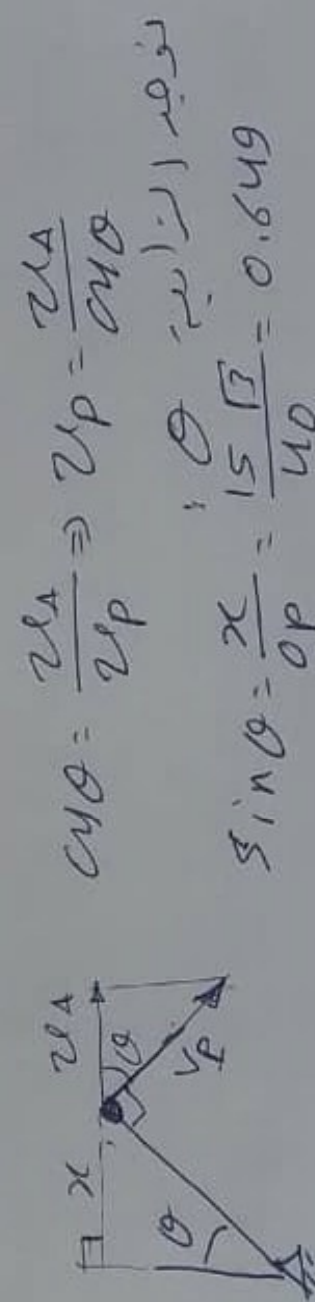 x v_A
θ
θ
v_P
cos θ = v_A / v_P ⇒ v_P = v_A / cos θ
نوجد الزاوية θ:
sin θ = x / OP = 15√3 / 40 = 0.649